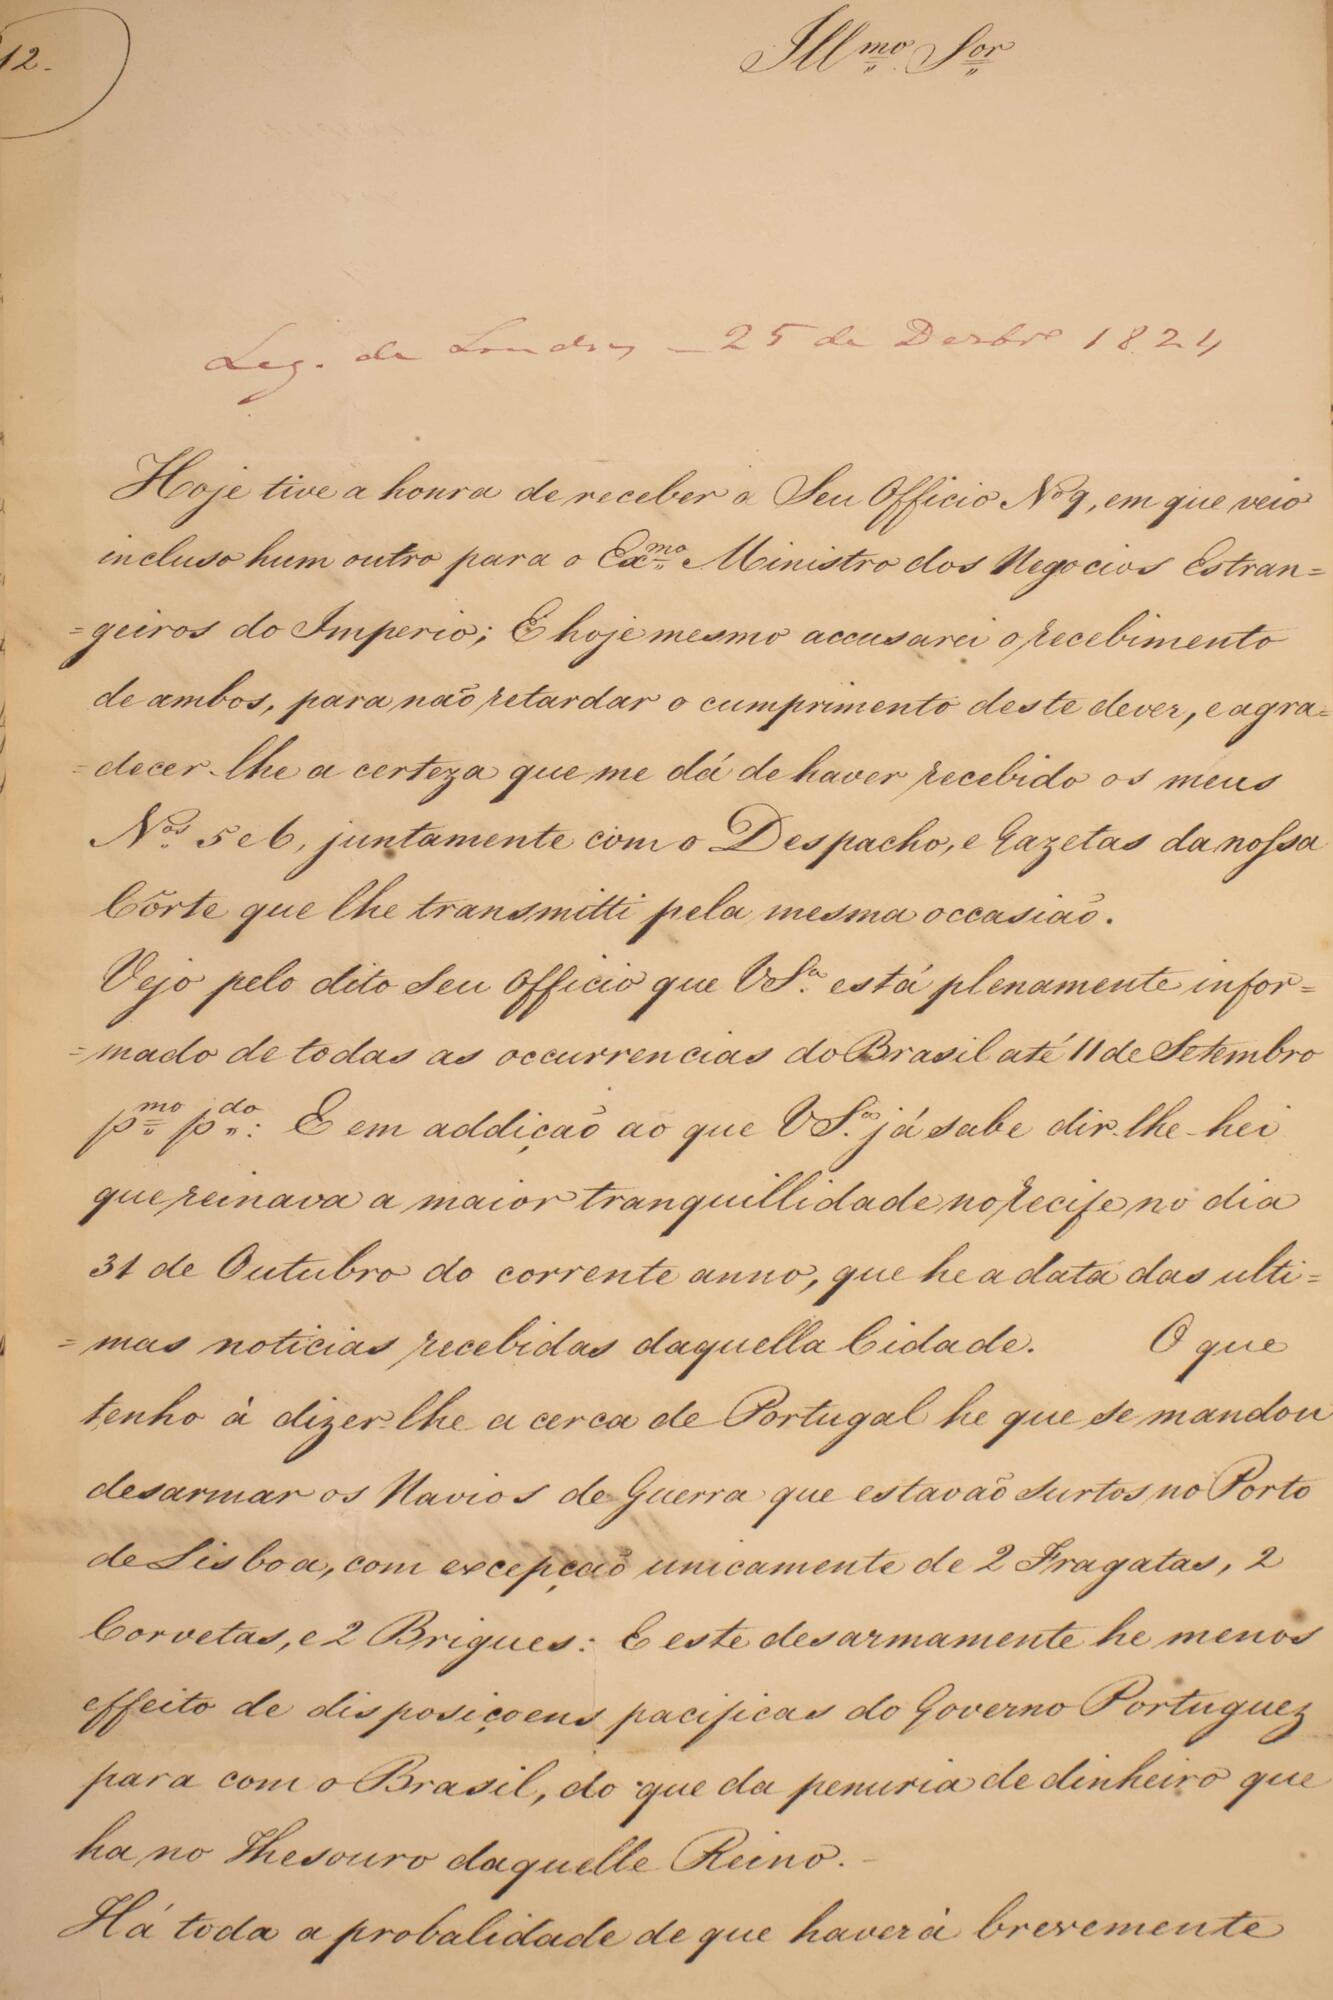 12.
Illmo Sor
Leg. de Londres — 25 de Dezbro 1824
Hoje tive a honra de receber a Seu Officio No 9, em que veio
incluso hum outro para o Exmo Ministro dos Negocios Estran=
=geiros do Imperio; E hoje mesmo accusarei o recebimento
de ambos, para naõ retardar o cumprimento deste dever, e agra=
=decer-lhe a certeza que me dá de haver recebido os meus
Nos 5 e 6, juntamente com o Despacho, e Gazetas da nossa
Côrte que lhe transmitti pela mesma occasiaõ.
Vejo pelo dito Seu Officio que VSa está plenamente infor=
=mado de todas as occurrencias do Brasil até 11 de Setembro
pmo pdo: E em addiçaõ ao que VSa já sabe dir-lhe-hei
que reinava a maior tranquillidade no recife no dia
31 de Outubro do corrente anno, que he a data das ulti=
=mas noticias recebidas daquella Cidade. O que
tenho à dizer-lhe a cerca de Portugal he que se mandou
desarmar os Navios de Guerra que estavaõ surtos no Porto
de Lisboa, com excepçaõ unicamente de 2 Fragatas, 2
Corvetas, e 2 Brigues: E este desarmamente he menos
effeito de disposiçoens pacificas do Governo Portuguez
para com o Brasil, do que da penuria de dinheiro que
ha no Thesouro daquelle Reino. —
Há toda a probalidade de que haverà brevemente